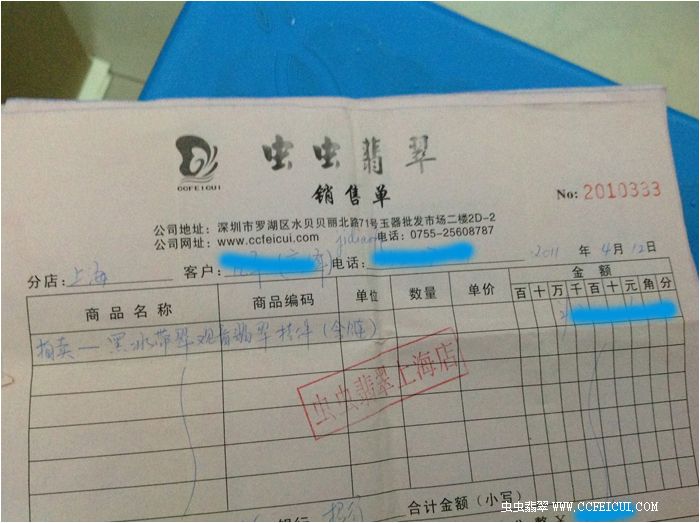 CCFEICUI
虫虫翡翠
销售单
No: 2010333
公司地址: 深圳市罗湖区水贝贝丽北路71号玉器批发市场二楼2D-2
公司网址: www.ccfeicui.com 电话: 0755-25608787
2011 年 4 月 12 日
分店: 上海 客户: 电话:
商品名称 商品编码 单位 数量 单价 金额
百 十 万 千 百 十 元 角 分
拍卖—黑冰带翠观音翡翠挂件
虫虫翡翠上海店
合计金额(小写)
虫虫翡翠 WWW.CCFEICUI.COM
银行
整 ¥